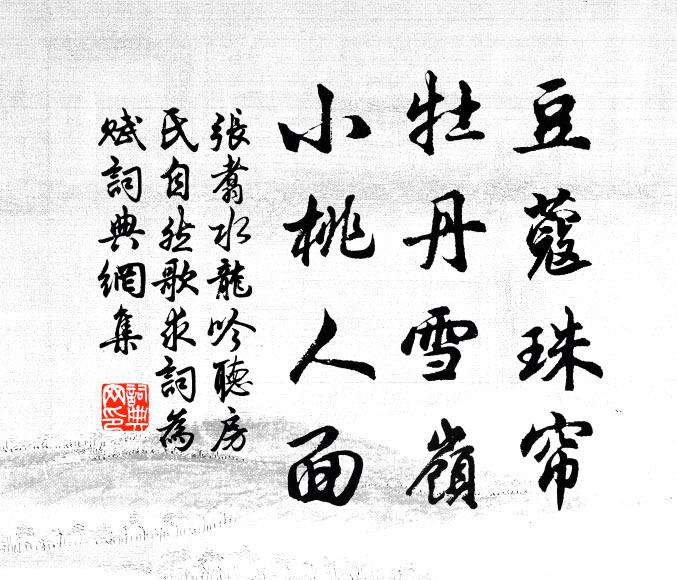 豆蔻珠帘
牡丹雪嶺
小桃人面
張翥水龍吟聽房
民自然歌求詞為
賦詞典網集
詞典网印